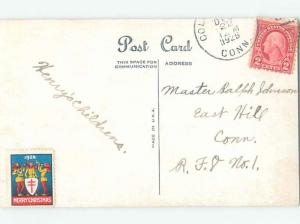 Post Card
THIS SPACE FOR
COMMUNICATION
ADDRESS
MADE IN U.S.A.
1929
CONN.
2 CENTS 2
Henry's Childrens.
Master Ralph Johnson
East Hill
Conn.
R.F.D No. 1.
MERRY CHRISTMAS